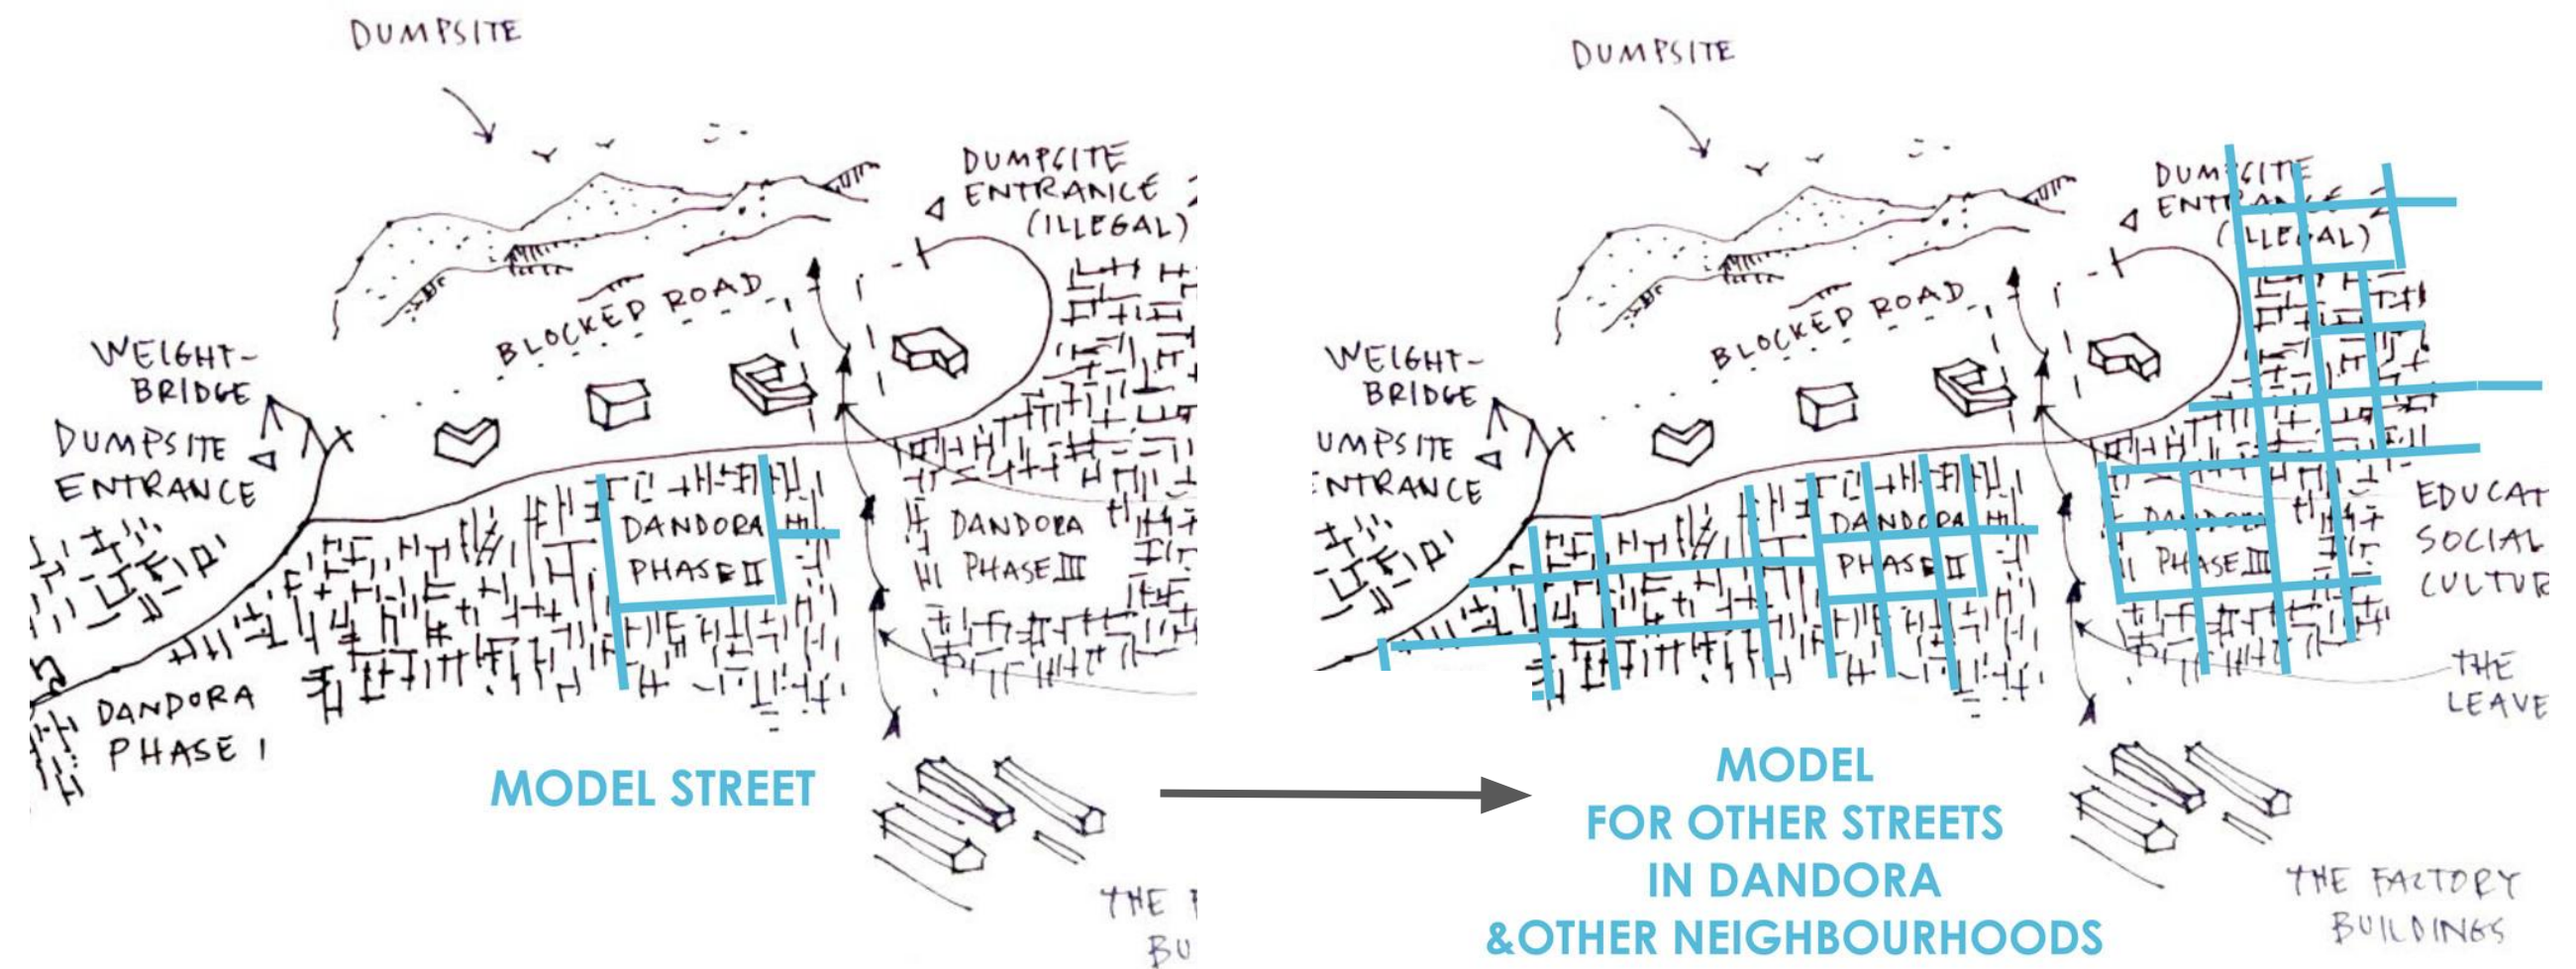 DUMPSITE
DUMPSITE
ENTRANCE 2
(ILLEGAL)
BLOCKED ROAD
WEIGHT-
BRIDGE
DUMPSITE
ENTRANCE
DANDORA
PHASE II
DANDORA
PHASE III
DANDORA
PHASE I
MODEL STREET
THE
BU
DUMPSITE
DUMPSITE
ENTRANCE 2
(ILLEGAL)
BLOCKED ROAD
WEIGHT-
BRIDGE
UMPSITE
ENTRANCE
DANDORA
PHASE II
DANDORA
PHASE III
EDUCAT
SOCIAL
CULTUR
THE
LEAVE
MODEL
FOR OTHER STREETS
IN DANDORA
&OTHER NEIGHBOURHOODS
THE FACTORY
BUILDINGS